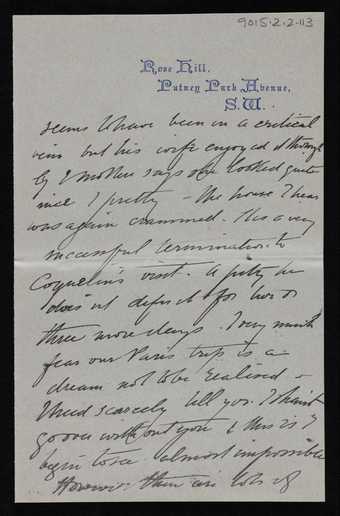 9015.2.2.113
Rose Hill.
Putney Park Avenue,
S.W.
seems to have been in a critical
vein but his wife enjoyed it thorough
ly & Mother says she looked quite
nice & pretty - The house I hear
was again crammed. It is a very
successful termination to
Coquelin's visit. A pity he
does n't defer it for two or
three more days. I very much
fear our Paris trip is a
dream not to be realised -
I need scarcely tell you I shan't
go over without you & this is I
begin to see almost impossible
However there are lots of